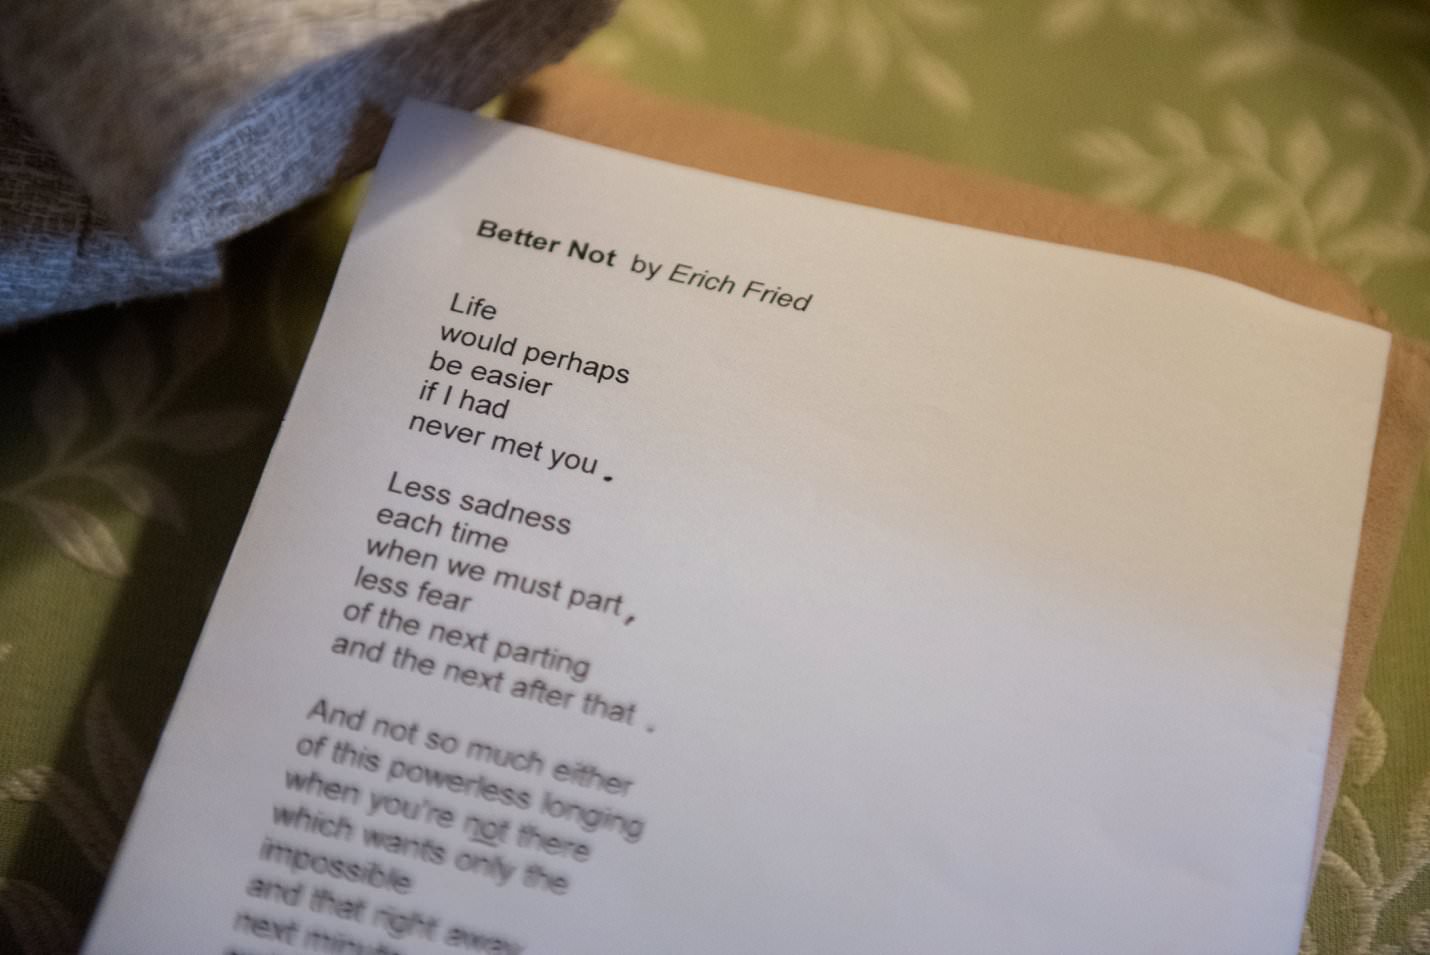 Better Not by Erich Fried
Life
would perhaps
be easier
if I had
never met you.
Less sadness
each time
when we must part,
less fear
of the next parting
and the next after that.
And not so much either
of this powerless longing
when you're not there
which wants only the
impossible
and that right away
next minute